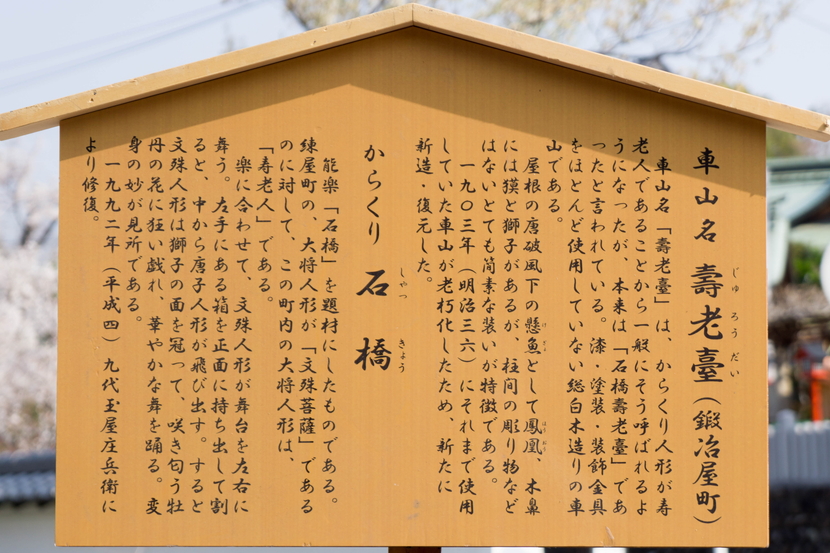 車山名 壽老臺(鍛冶屋町)
じゅ ろう だい
車山名「壽老臺」は、からくり人形が寿
老人であることから一般にそう呼ばれるよ
うになったが、本来は「石橋壽老臺」であ
ったと言われている。漆・塗装・装飾金具
をほとんど使用していない総白木造りの車
山である。
屋根の唐破風下の懸魚として鳳凰、木鼻
には獏と獅子があるが、柱間の彫り物など
はないとても簡素な装いが特徴である。
一九〇三年(明治三六)にそれまで使用
していた車山が老朽化したため、新たに
新造・復元した。
からくり 石橋
しゃっ きょう
能楽「石橋」を題材にしたものである。
練屋町の、大将人形が「文殊菩薩」である
のに対して、この町内の大将人形は、
「寿老人」である。
楽に合わせて、文殊人形が舞台を左右に
舞う。左手にある箱を正面に持ち出して割
ると、中から唐子人形が飛び出す。すると
文殊人形は獅子の面を冠って、咲き匂う牡
丹の花に狂い戯れ、華やかな舞を踊る。変
身の妙が見所である。
一九九二年(平成四)九代玉屋庄兵衛に
より修復。